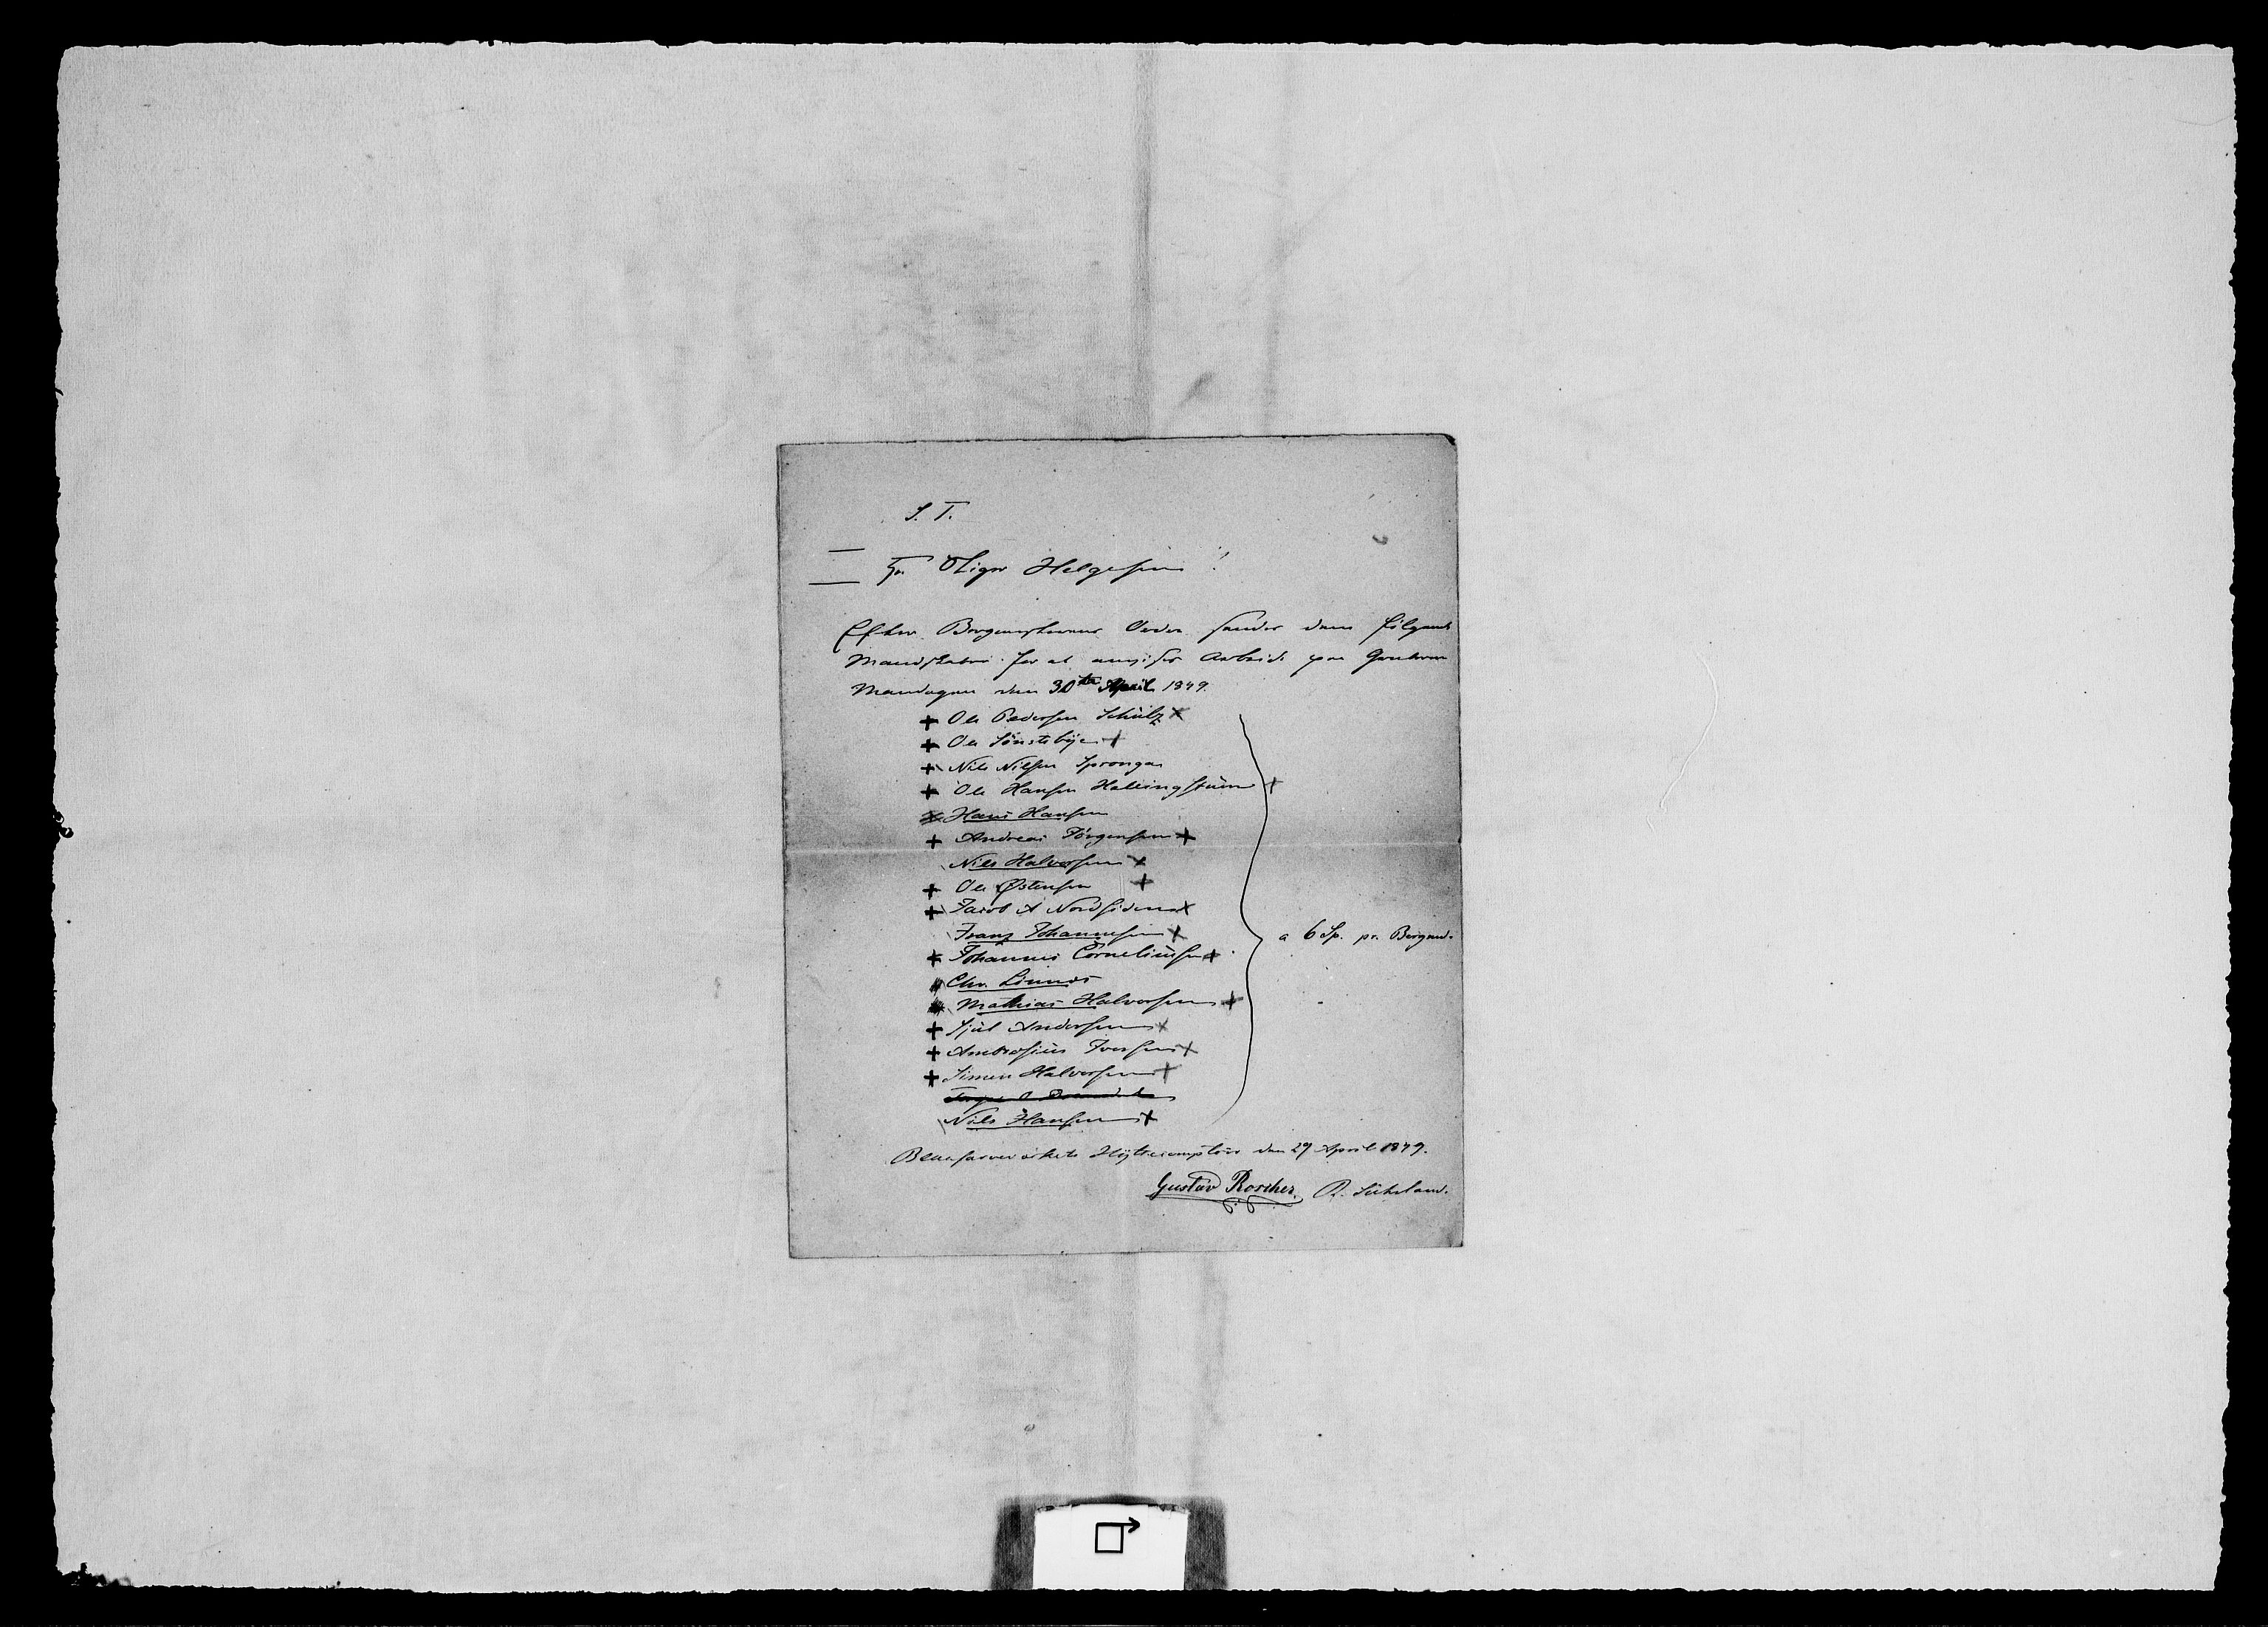 S. T.
Hr. Stiger Helgesen!
Efter Bergmesterens Order sendes dem følgende
Mandskaber for at anvises Arbeide paa Gruberne
Mandagen den 30te April 1849.
+ Ole Pedersen Schülz x
+ Ole Sönstebÿe +
+ Nils Nilsen Sprongen
+ Ole Hansen Hallingstuen +
x Hans Hansen
+ Andreas Jörgensen +
Nils Halvorsen x
+ Ole Østensen +
+ Jacob A Nordsiden x
Franz Johannesen x
+ Johannes Corneliüsen +
Chr. Linnes
Mathias Halvorsen +
+ Sjül Andersen x
+ Ambrosius Iversen x
+ Simen Halvorsen +
Nils Hansen +
a 6 Sp. pr. Bergmd.
Blaafarveværkets den 29 April 1849.
Gustav Roscher. R.